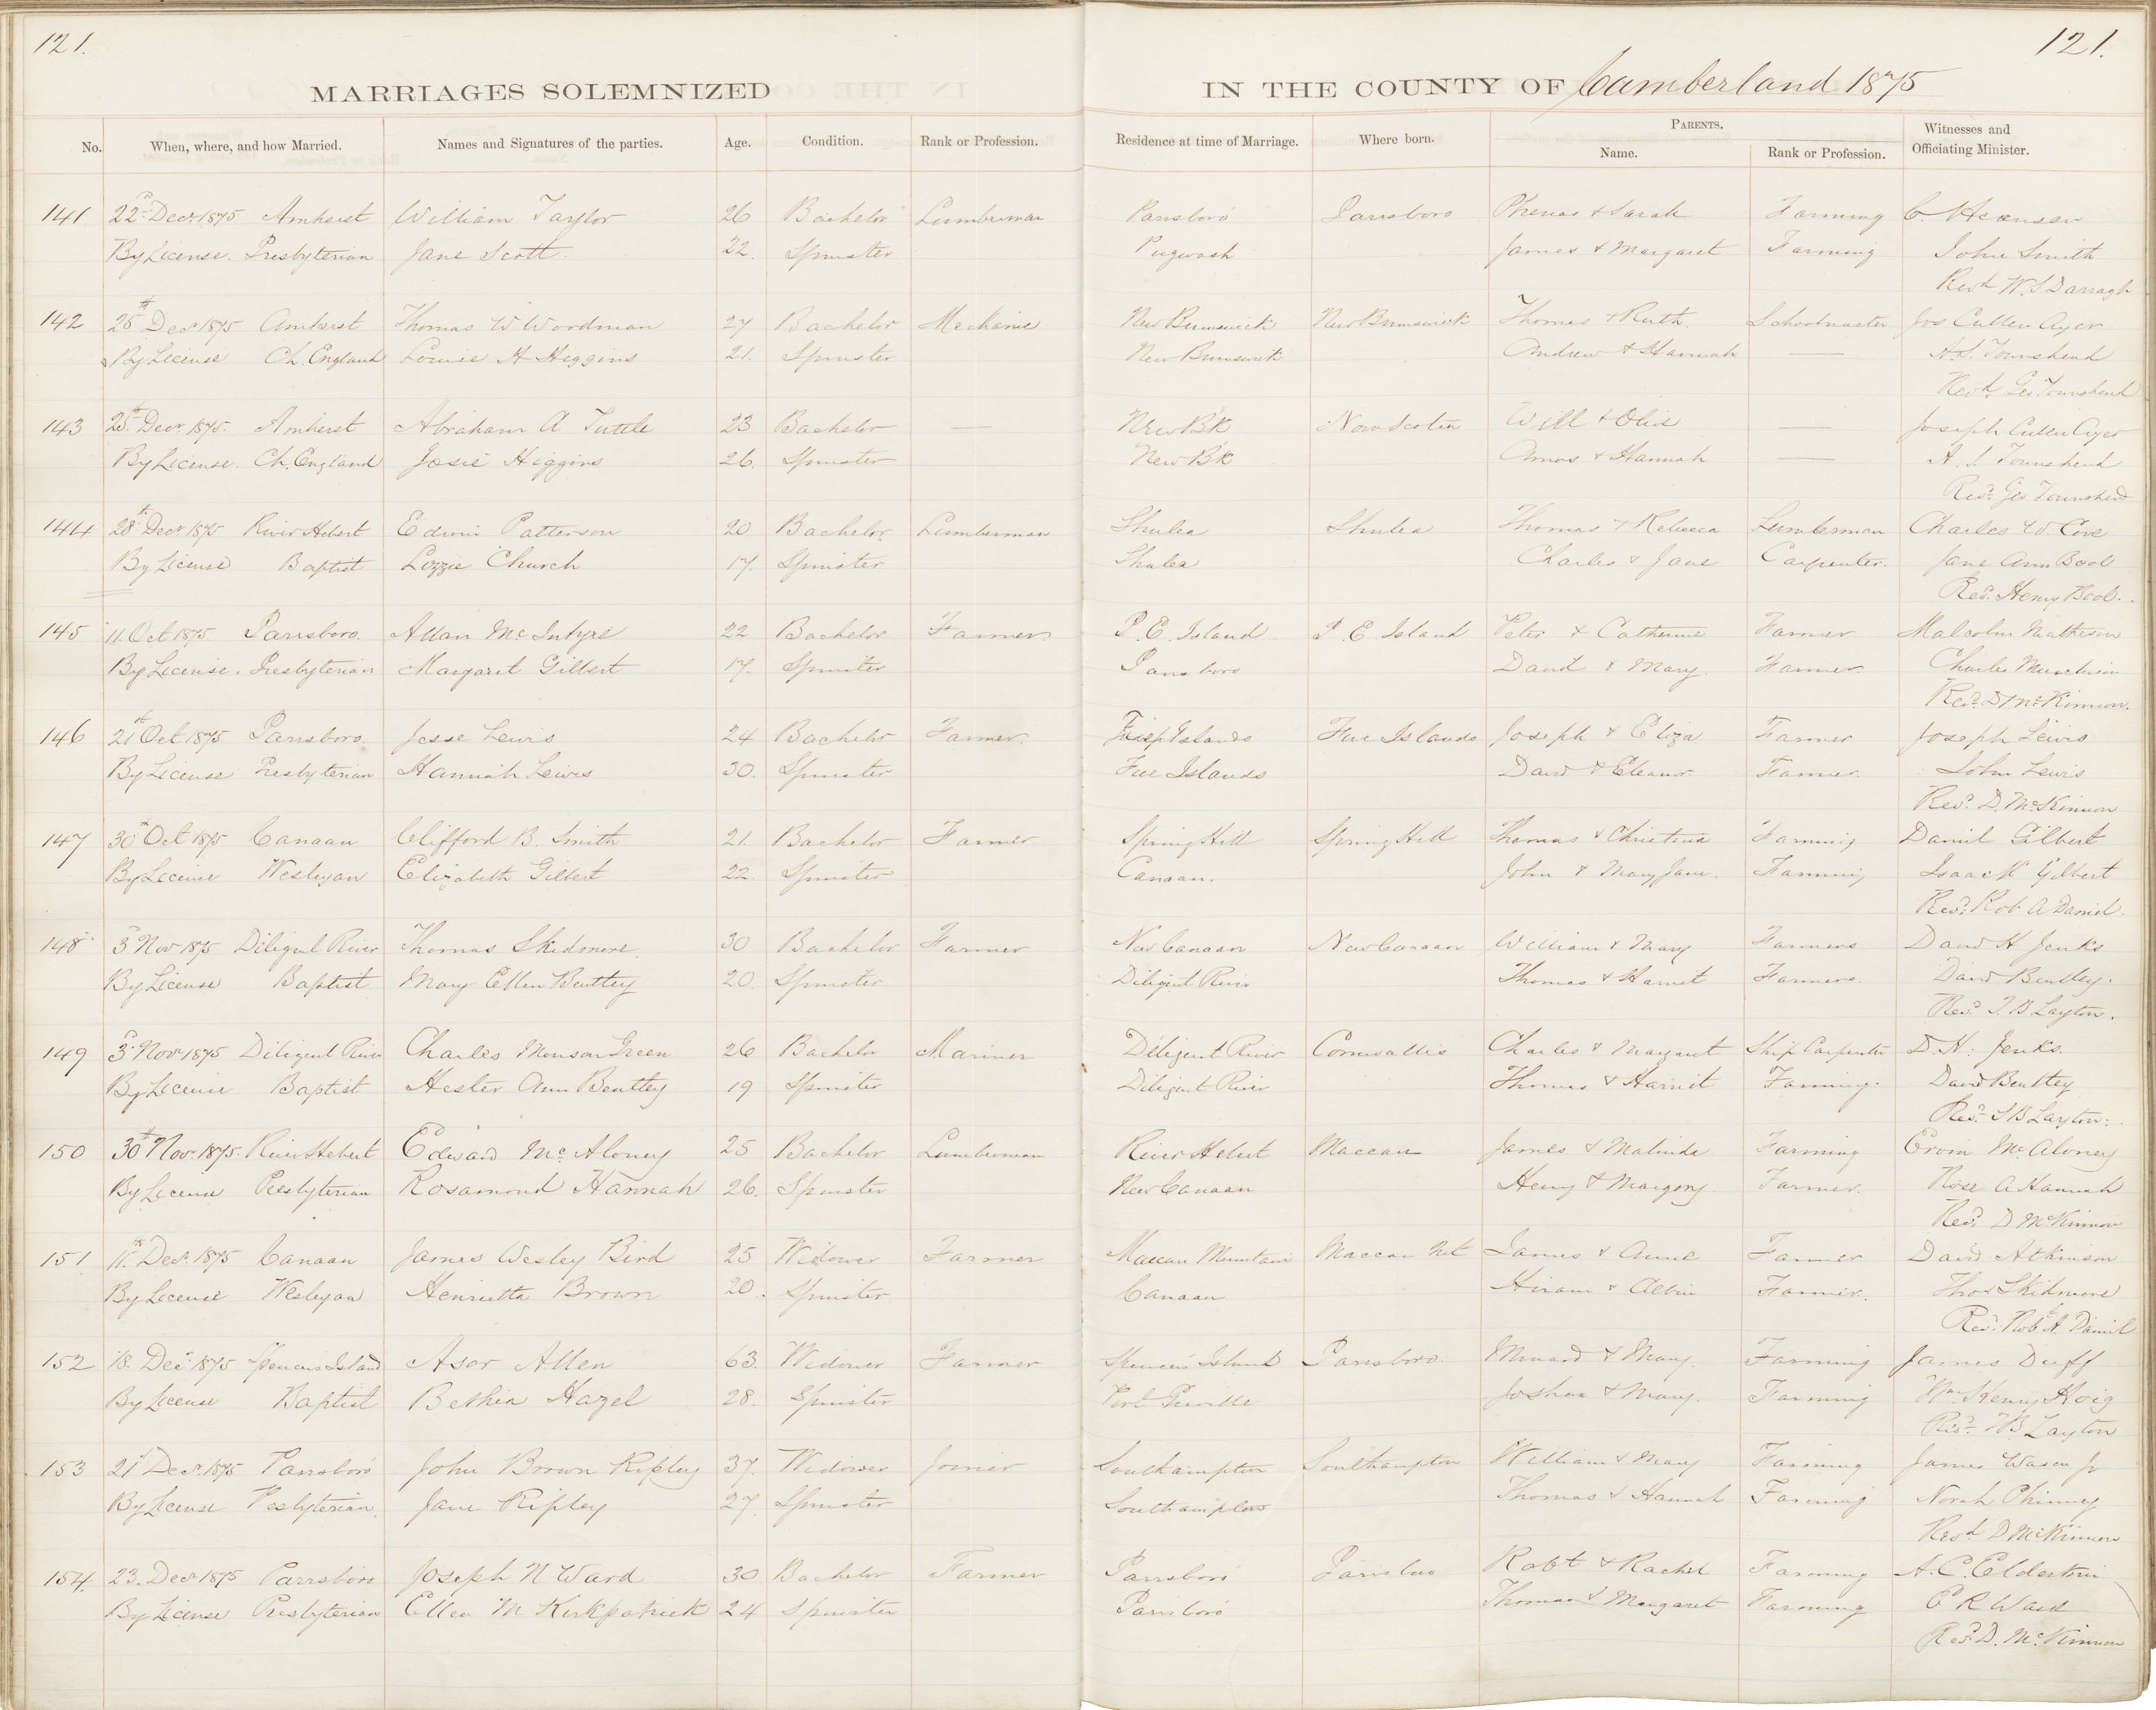 121.
121.
MARRIAGES SOLEMNIZED IN THE COUNTY OF Cumberland 1875
No. When, where, and how Married. Names and Signatures of the parties. Age. Condition. Rank or Profession. Residence at time of Marriage. Where born. PARENTS. Name. Rank or Profession. Witnesses and Officiating Minister.
141 22d Decr 1875 Amherst William Taylor 26 Bachelor Lumberman Parrsboro Parrsboro & Sarah Farming C.
By License. Presbyterian Jane Scott. 22. Spinster Pugwash James & Margaret Farming John Smith
Revd W. S Darragh
142 25th Decr 1875 Amherst Thomas W Woodman 27 Bachelor Mechanic New Brunswick New Brunswick Thomas & Ruth Schoolmaster Jos Cullen Ayer
By License Ch. England Louise H Higgins 21. Spinster New Brunswick Andrew & Hannah — A. S. Townshend
Revd Geo. Townshend
143 25th Decr 1875. Amherst Abraham A Tuttle 23 Bachelor — New BK Nova Scotia Will & — Joseph Cullen Ayer
By License. Ch. England Josie Higgins 26. Spinster New BK Amos & Hannah — A. S. Townshend
Revd Geo Townshend
144 28th Decr 1875 River Hebert Edwin Patterson 20 Bachelor Lumberman Shulea Shulea Thomas & Rebecca Lumberman Charles W. Cove
By License Baptist Lozzie Church 17. Spinster Shulea Charles & Jane Carpenter. Jane Ann Bool
Revd. Henry Bool.
145 11 Oct 1875 Parrsboro. Allan McIntyre 22 Bachelor Farmer P. E. Island P. E Island Peter & Catherine Farmer Malcolm Matheson
By License. Presbyterian Margaret Gilbert 17. Spinster Parrsboro David & Mary. Farmer. Charles Murchison
Revd. D McKinnon.
146 21st Oct 1875 Parrsboro. Jesse Lewis 24 Bachelor Farmer. Five Islands Five Islands Joseph & Eliza Farmer Joseph Lewis
By License Presbyterian Hannah Lewis 30. Spinster Five Islands David & Eleanor Farmer. John Lewis
Revd. D. McKinnon
147 30th Oct 1875 Canaan Clifford B. Smith 21. Bachelor Farmer Spring Hill Spring Hill Thomas & Christina Farming Daniel Gilbert
By License Wesleyan Elizabeth Gilbert 22. Spinster Canaan. John & Mary Jane. Farming Isaac Gilbert
Revd. Rob A Daniel.
148 3d Nov 1875 Diligent River Thomas Skidmore. 30 Bachelor Farmer New Canaan New Canaan William & Mary Farmers David H Jenks
By License Baptist Mary Ellen Bentley 20. Spinster Diligent River Thomas & Harriet Farmers. David Bentley.
Revd T B Layton.
149 3d. Novr 1875 Diligent River Charles Monson Green 26 Bachelor Mariner Diligent River Cornwallis Charles & Margaret Ship Carpenter D. H. Jenks.
By License Baptist Hester Ann Bentley 19 Spinster Diligent River Thomas & Harriet Farming. David Bentley
Revd. T B Layton.
150 30th Novr 1875. River Hebert Edward McAloney 25 Bachelor Lumberman River Hebert Maccan James & Malinda Farming McAloney
By License Presbyterian Rosamond Hannah 26. Spinster New Canaan Henry & Margery Farmer. Rose A Hannah
Revd. D McKinnon
151 Decr 1875 Canaan James Wesley Bird 25 Widower Farmer Maccan Mountain Maccan Mt James & Anne Farmer David Atkinson
By License Wesleyan Henrietta Brown 20. Spinster Canaan Hiram & Farmer. Thos Skidmore
Revd. Rob A Daniel
152 18. Decr 1875 Spencers Island Asor Allen 63. Widower Farmer Spencers Island Parrsboro. & Mary. Farming James Duff
By License Baptist Bethia Hazel 28. Spinster Port Greville Joshua & Mary. Farming Wm Henry Hoig
Revd. T B Layton
153 21st Decr 1875 Parrsboro John Brown Ripley 37. Widower Joiner Southampton Southampton William & Mary Farming James Wason Jr
By License Presbyterian. Jane Ripley 27. Spinster Southampton Thomas & Hannah Farming Norah Phinney
Revd D McKinnon
154. 23. Decr 1875 Parrsboro Joseph N Ward 30 Bachelor Farmer Parrsboro Parrsboro Robt & Rachel Farming A. C. Elderkin
By License Presbyterian Ellen M Kirkpatrick 24 Spinster Parrsboro Thomas & Margaret Farming E R Ward
Revd. D. McKinnon